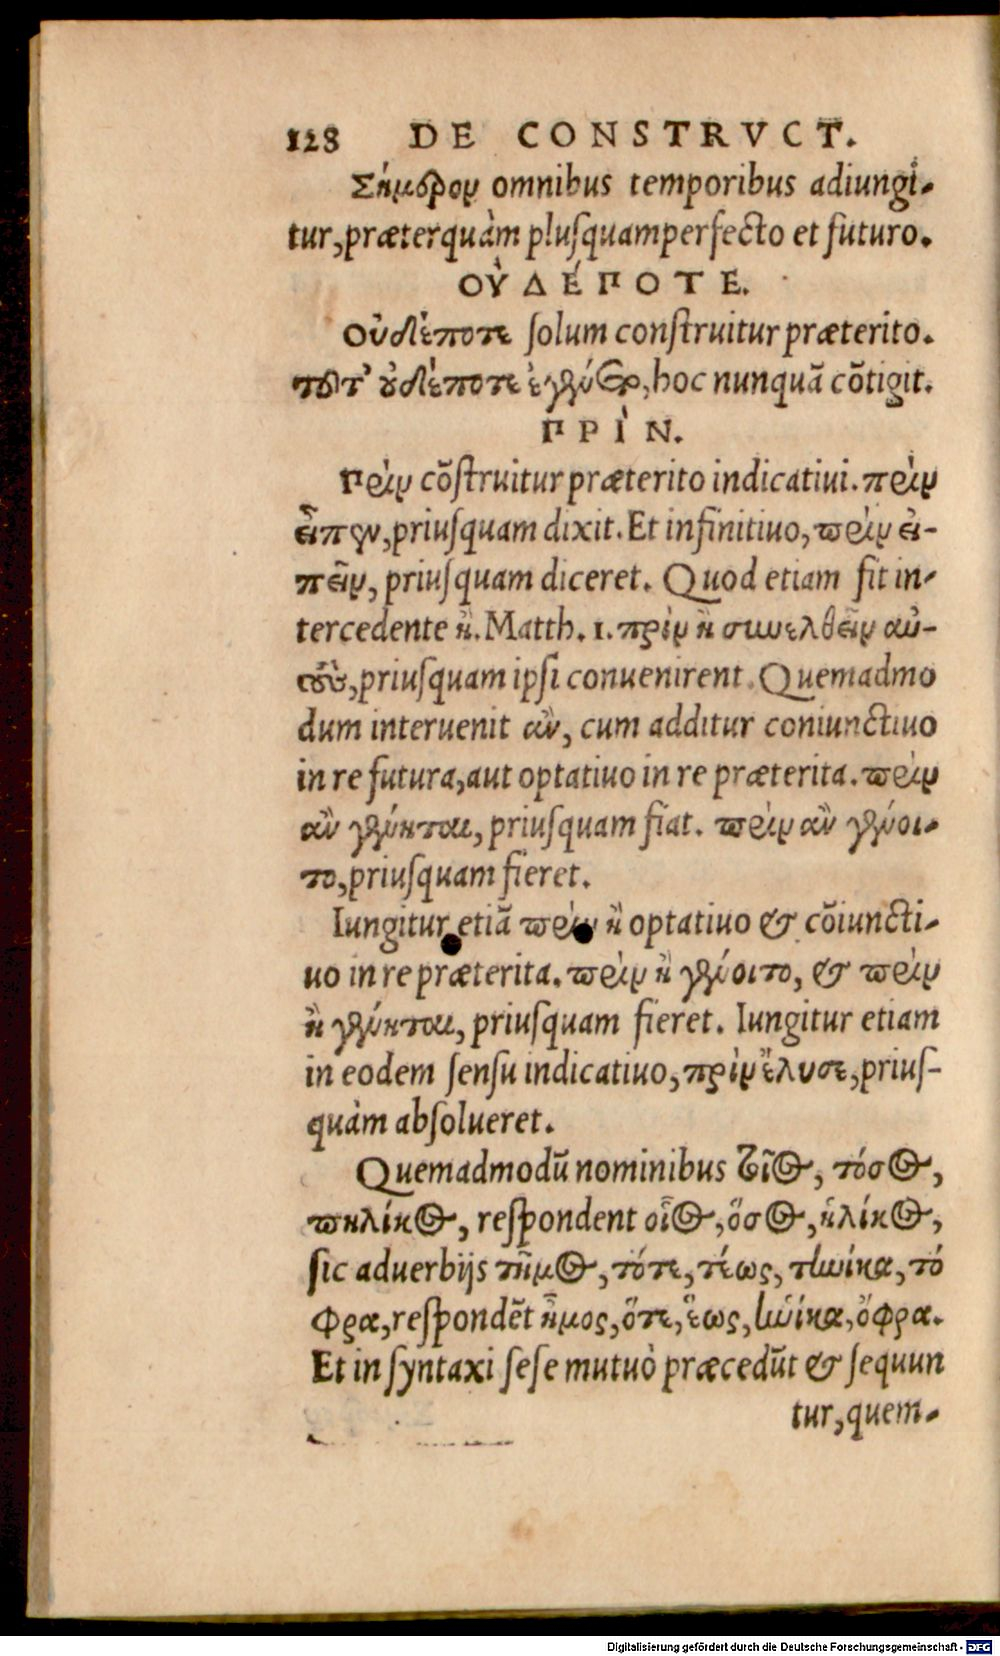 128 DE CONSTRVCT.
Σήμερον omnibus temporibus adiungi-
tur, præterquàm plusquamperfecto et futuro.
ΟΥ̓ΔΈΠΟΤΕ.
Οὐδέποτε solum construitur præterito.
τοῦτ' οὐδέποτε ἐγένετο, hoc nunquã cõtigit.
ΠΡῚΝ.
Πρὶν cõstruitur præterito indicatiui. πρὶν
εἶπεν, priusquam dixit. Et infinitiuo, πρὶν εἰ-
πεῖν, priusquam diceret. Quod etiam fit in-
tercedente ἢ. Matth. 1. πρὶν ἢ συνελθεῖν αὐ-
τοὺς, priusquam ipsi conuenirent. Quemadmo
dum interuenit ἂν, cum additur coniunctiuo
in re futura, aut optatiuo in re præterita. πρὶν
ἂν γένηται, priusquam fiat. πρὶν ἂν γένοι-
το, priusquam fieret.
Iungitur etiã πρὶν ἢ optatiuo & cõiuncti-
uo in re præterita. πρὶν ἢ γένοιτο, & πρὶν
ἢ γένηται, priusquam fieret. Iungitur etiam
in eodem sensu indicatiuo, πρὶν ἔλυσε, prius-
quàm absolueret.
Quemadmodũ nominibus τοῖος, τόσος,
πηλίκος, respondent οἷος, ὅσος, ἡλίκος,
sic aduerbijs τῆμος, τότε, τέως, τηνίκα, τό
φρα, respondẽt ἧμος, ὅτε, ἕως, ἡνίκα, ὄφρα.
Et in syntaxi sese mutuò præcedũt & sequun
tur, quem-
Digitalisierung gefördert durch die Deutsche Forschungsgemeinschaft - DFG